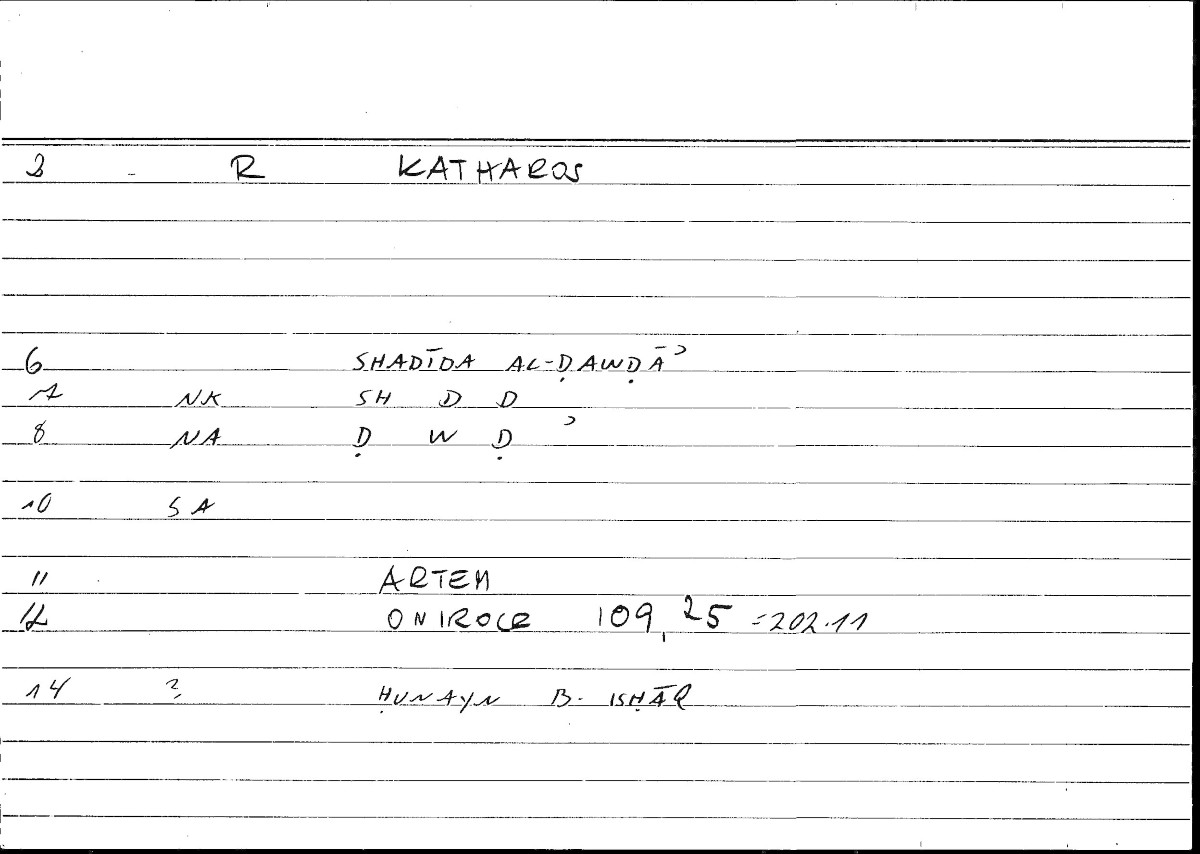 3 - R KATHAROS
6 SHADĪDA AL-ḌAWḌĀʾ
7 NK SH D D
8 NA Ḍ W Ḍ ʾ
10 SA
11 ARTEM
12 ONIROCR 109, 25 = 202.11
14 ? ḤUNAYN B. ISḤĀQ